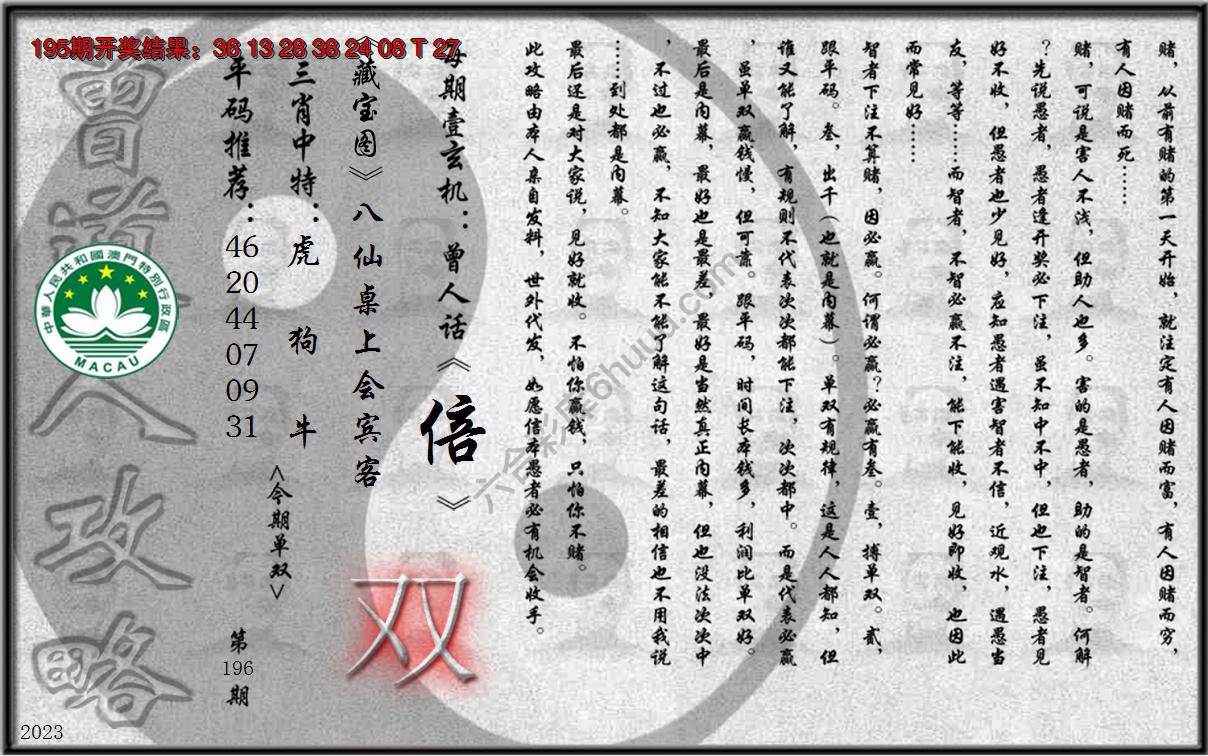 195期开奖结果：36 13 28 38 24 08 T 27
赌，从前有赌的第一天开始，就注定有人因赌而富，有人因赌而穷，
有人因赌而死……
赌，可说是害人不浅，但助人也多。害的是愚者，助的是智者。何解
？先说愚者，愚者逢开奖必下注，虽不知中不中，但也下注，愚者见
好不收，但愚者也少见好，应知愚者遇害智者不信，近观水，遇愚当
友，等等……而智者，不智必赢不注，能下能收，见好即收，也因此
而常见好……
智者下注不算赌，因必赢。何谓必赢？必赢有叁。壹，搏单双。贰，
跟平码。叁，出千（也就是内幕）。单双有规律，这是人人都知，但
谁又能了解，有规则不代表次次都能下注，次次都中。而是代表必赢
，虽单双赢钱慢，但可靠。跟平码，时间长本钱多，利润比单双好。
最后是内幕，最好也是最差，最好是当然真正内幕，但也没法次次中
，不过也必赢，不知大家能不能了解这句话，最差的相信也不用我说
……到处都是内幕。
最后还是对大家说，见好就收。不怕你赢钱，只怕你不赌。
此攻略由本人亲自发料，世外代发，如愿信本愚者必有机会收手。
每期壹玄机：曾人话《倍》
《藏宝图》八仙桌上会宾客
双
三肖中特：虎 狗 牛
<今期单双>
平码推荐：46 20 44 07 09 31
第196期
曾道人攻略
中華人民共和國澳門特別行政區
MACAU
2023
六合彩库6huuu.com